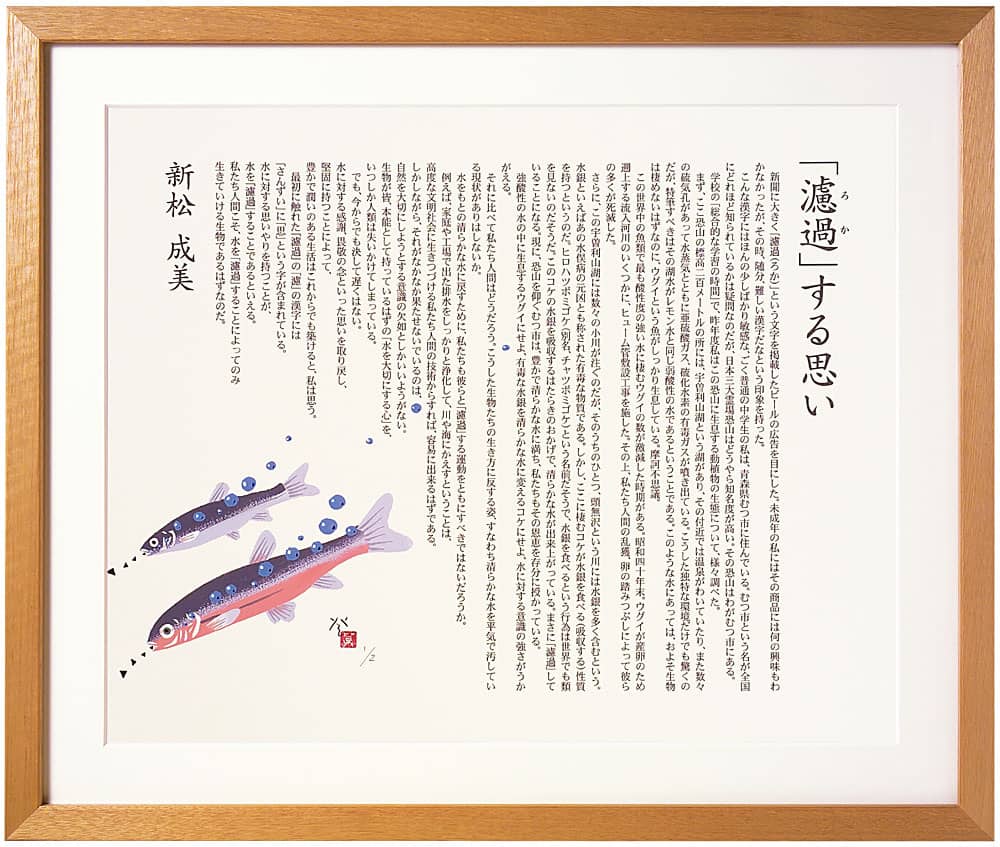 「濾過」する思い
ろか
新聞に大きく「濾過(ろか)」という文字を掲載したビールの広告を目にした。未成年の私にはその商品には何の興味もわ
かなかったが、その時、随分、難しい漢字だなという印象を持った。
こんな漢字にはほんの少しばかり敏感な、ごく普通の中学生の私は、青森県むつ市に住んでいる。むつ市という名が全国
にどれほど知られているかは疑問なのだが、日本三大霊場恐山はどうやら知名度が高い。その恐山はわがむつ市にある。
学校の「総合的な学習の時間」で、昨年度私はこの恐山に生息する動植物の生態について、様々調べた。
まず、ここ恐山の標高二百メートルの所には、宇曽利山湖という湖があり、その付近では温泉がわいていたり、また数々
の硫気孔があって水蒸気とともに亜硫酸ガス、硫化水素の有毒ガスが噴き出ている。こうした独特な環境だけでも驚くの
だが、特筆すべきはその湖水がレモン水と同じ弱酸性の水であるということである。このような水にあっては、およそ生物
は棲めないはずなのに、ウグイという魚がしっかり生息している。摩訶不思議。
この世界中の魚類で最も酸性度の強い水に棲むウグイの数が激減した時期がある。昭和四十年末、ウグイが産卵のため
遡上する流入河川のいくつかに、ヒューム管敷設工事を施した。その上、私たち人間の乱獲、卵の踏みつぶしによって彼ら
の多くが死滅した。
さらに、この宇曽利山湖には数々の小川が注ぐのだが、そのうちのひとつ、頭無沢という川には水銀を多く含むという。
水銀といえばあの水俣病の元凶とも称された有毒な物質である。しかし、ここに棲むコケが水銀を食べる(吸収する)性質
を持つというのだ。ヒロハツボミゴケ(別名、チャツボミゴケ)という名前だそうで、水銀を食べるという行為は世界でも類
を見ないのだそうだ。このコケの水銀を吸収するはたらきのおかげで、清らかな水が出来上がっている。まさに「濾過」して
いることになる。現に、恐山を仰ぐむつ市は、豊かで清らかな水に満ち、私たちもその恩恵を存分に授かっている。
強酸性の水の中に生息するウグイにせよ、有毒な水銀を清らかな水に変えるコケにせよ、水に対する意識の強さがうか
がえる。
それに比べて私たち人間はどうだろう。こうした生物たちの生き方に反する姿、すなわち清らかな水を平気で汚してい
る現状がありはしないか。
水をもとの清らかな水に戻すために、私たちも彼らと「濾過」する運動をともにすべきではないだろうか。
例えば、家庭や工場で出た排水をしっかりと浄化して、川や海にかえすということは、
高度な文明社会に生きつづける私たち人間の技術からすれば、容易に出来るはずである。
しかしながら、それがなかなか果たせないでいるのは、
自然を大切にしようとする意識の欠如としかいいようがない。
生物が皆、本能として持っているはずの「水を大切にする心」を、
いつしか人類は失いかけてしまっている。
でも、今からでも決して遅くはない。
水に対する感謝、畏敬の念といった思いを取り戻し、
堅固に持つことによって、
豊かで潤いのある生活はこれからでも築けると、私は思う。
最初に触れた「濾過」の「濾」の漢字には
「さんずい」に「思」という字が含まれている。
水に対する思いやりを持つことが、
水を「濾過」することであるといえる。
私たち人間こそ、水を「濾過」することによってのみ
生きていける生物であるはずなのだ。
新松 成美
1/2